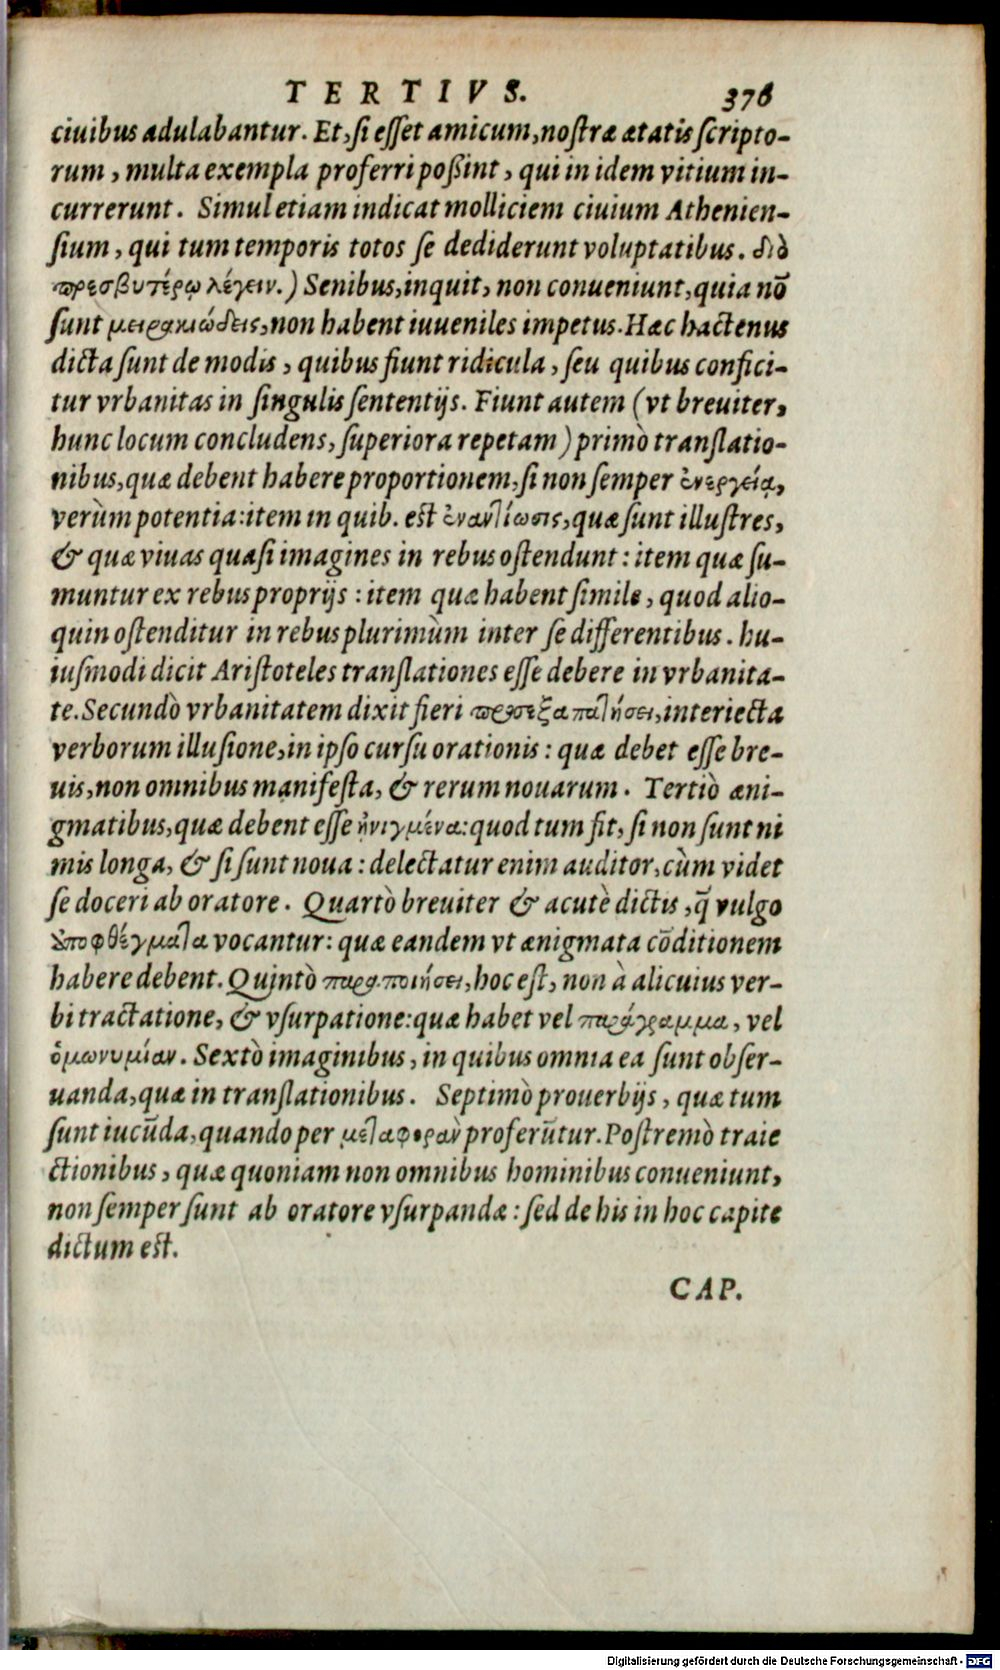 TERTIVS. 376
ciuibus adulabantur. Et, si esset amicum, nostræ ætatis scripto-
rum, multa exempla proferri poßint, qui in idem vitium in-
currerunt. Simul etiam indicat molliciem ciuium Athenien-
sium, qui tum temporis totos se dediderunt voluptatibus. διὸ
πρεσβυτέρῳ λέγειν.) Senibus, inquit, non conueniunt, quia nō
sunt μειρακιώδεις, non habent iuueniles impetus. Hæc hactenus
dicta sunt de modis, quibus fiunt ridicula, seu quibus confici-
tur vrbanitas in singulis sententijs. Fiunt autem (vt breuiter,
hunc locum concludens, superiora repetam) primò translatio-
nibus, quæ debent habere proportionem, si non semper ἐνεργείᾳ,
verùm potentia: item in quib. est ἐναντίωσις, quæ sunt illustres,
& quæ viuas quasi imagines in rebus ostendunt: item quæ su-
muntur ex rebus proprijs: item quæ habent simile, quod alio-
quin ostenditur in rebus plurimùm inter se differentibus. hu-
iusmodi dicit Aristoteles translationes esse debere in vrbanita-
te. Secundò vrbanitatem dixit fieri προσεξαπατήσει, interiecta
verborum illusione, in ipso cursu orationis: quæ debet esse bre-
uis, non omnibus manifesta, & rerum nouarum. Tertiò æni-
gmatibus, quæ debent esse ἠνιγμένα: quod tum fit, si non sunt ni
mis longa, & si sunt noua: delectatur enim auditor, cùm videt
se doceri ab oratore. Quartò breuiter & acutè dictis, q̄ vulgo
ἀποφθέγματα vocantur: quæ eandem vt ænigmata cōditionem
habere debent. Quintò παραποιήσει, hoc est, non à alicuius ver-
bi tractatione, & vsurpatione: quæ habet vel παράγραμμα, vel
ὁμωνυμίαν. Sextò imaginibus, in quibus omnia ea sunt obser-
uanda, quæ in translationibus. Septimò prouerbijs, quæ tum
sunt iucūda, quando per μεταφορὰν proferūtur. Postremò traie
ctionibus, quæ quoniam non omnibus hominibus conueniunt,
non semper sunt ab oratore vsurpandæ: sed de his in hoc capite
dictum est.
CAP.
Digitalisierung gefördert durch die Deutsche Forschungsgemeinschaft - DFG